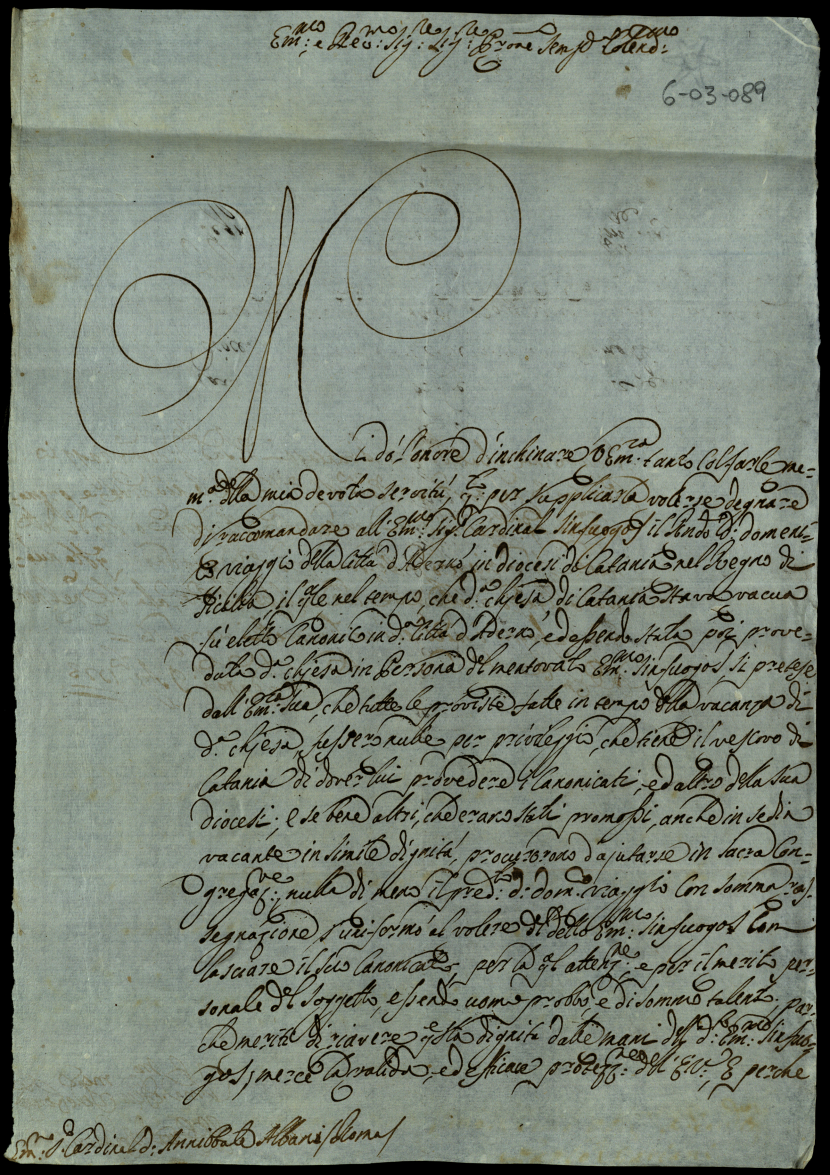 Em:mo e Rev:mo Sig:re Sig:re Prone Semp:e Colend:mo
6-03-089
Mi dò l'onore d'inchinare V Em:za tanto Col farle me-
m:a della mia devota servitù, q:to per supplicarla volerse degnare
di raccomandare all'Em:mo Sig:r Cardinal Sinfuegos il Sind:o D: Domeni-
co Viaggio della Città d'Adernò in diocesi di Catania nel Regno di
Sicilia il q:le nel tempo, che d:a chiesa di Catania stava vacua
fù eletto Canonico in d:a Città d'Adernò, ed essendo stata poi prove-
duta d:a chiesa in Persona del mentovato Em:mo Sinfuegos, si pretese
dall'Em:za Sua, che tutte le proviste fatte in tempo della vacanza di
d:a chiesa, fussero nulle per privileggio, che tiene il vescovo di
Catania di dover lui provedere i Canonicati, ed altro della Sua
diocesi; e se bene altri, che erano stati promossi, anche in sedia
vacante in simile dignità, procurorono d'ajutarse in Sacra Con-
gregaz:ne, nulla di meno il pred:to D: Dom:co Viaggio con somma ras-
segnazione s'uniformò al volere di detto Em:mo Sinfuegos Con
lasciare il suo Canonicato, per la q:l attenz:ne, e per il merito per-
sonale del Soggetto, essendo uomo probbo, e di sommo talento, par
che merite di riavere q:sta dignità dalle mani dell' d:o Em:mo Sinfue-
gos, mercè la valida, ed efficace protez:ne dell'Em:za V:, E perche
Em:mo S:r Cardinal D: Annibbale Albani Roma